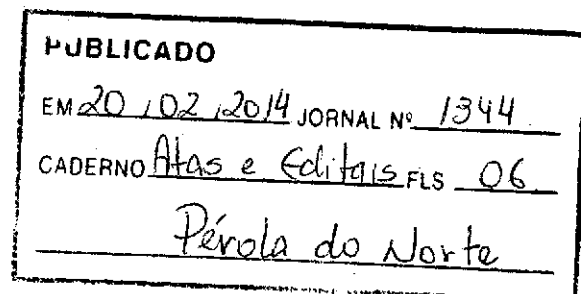 PUBLICADO
EM 20 / 02 / 2014 JORNAL Nº 1344
CADERNO Atas e Editais FLS 06
Pérola do Norte